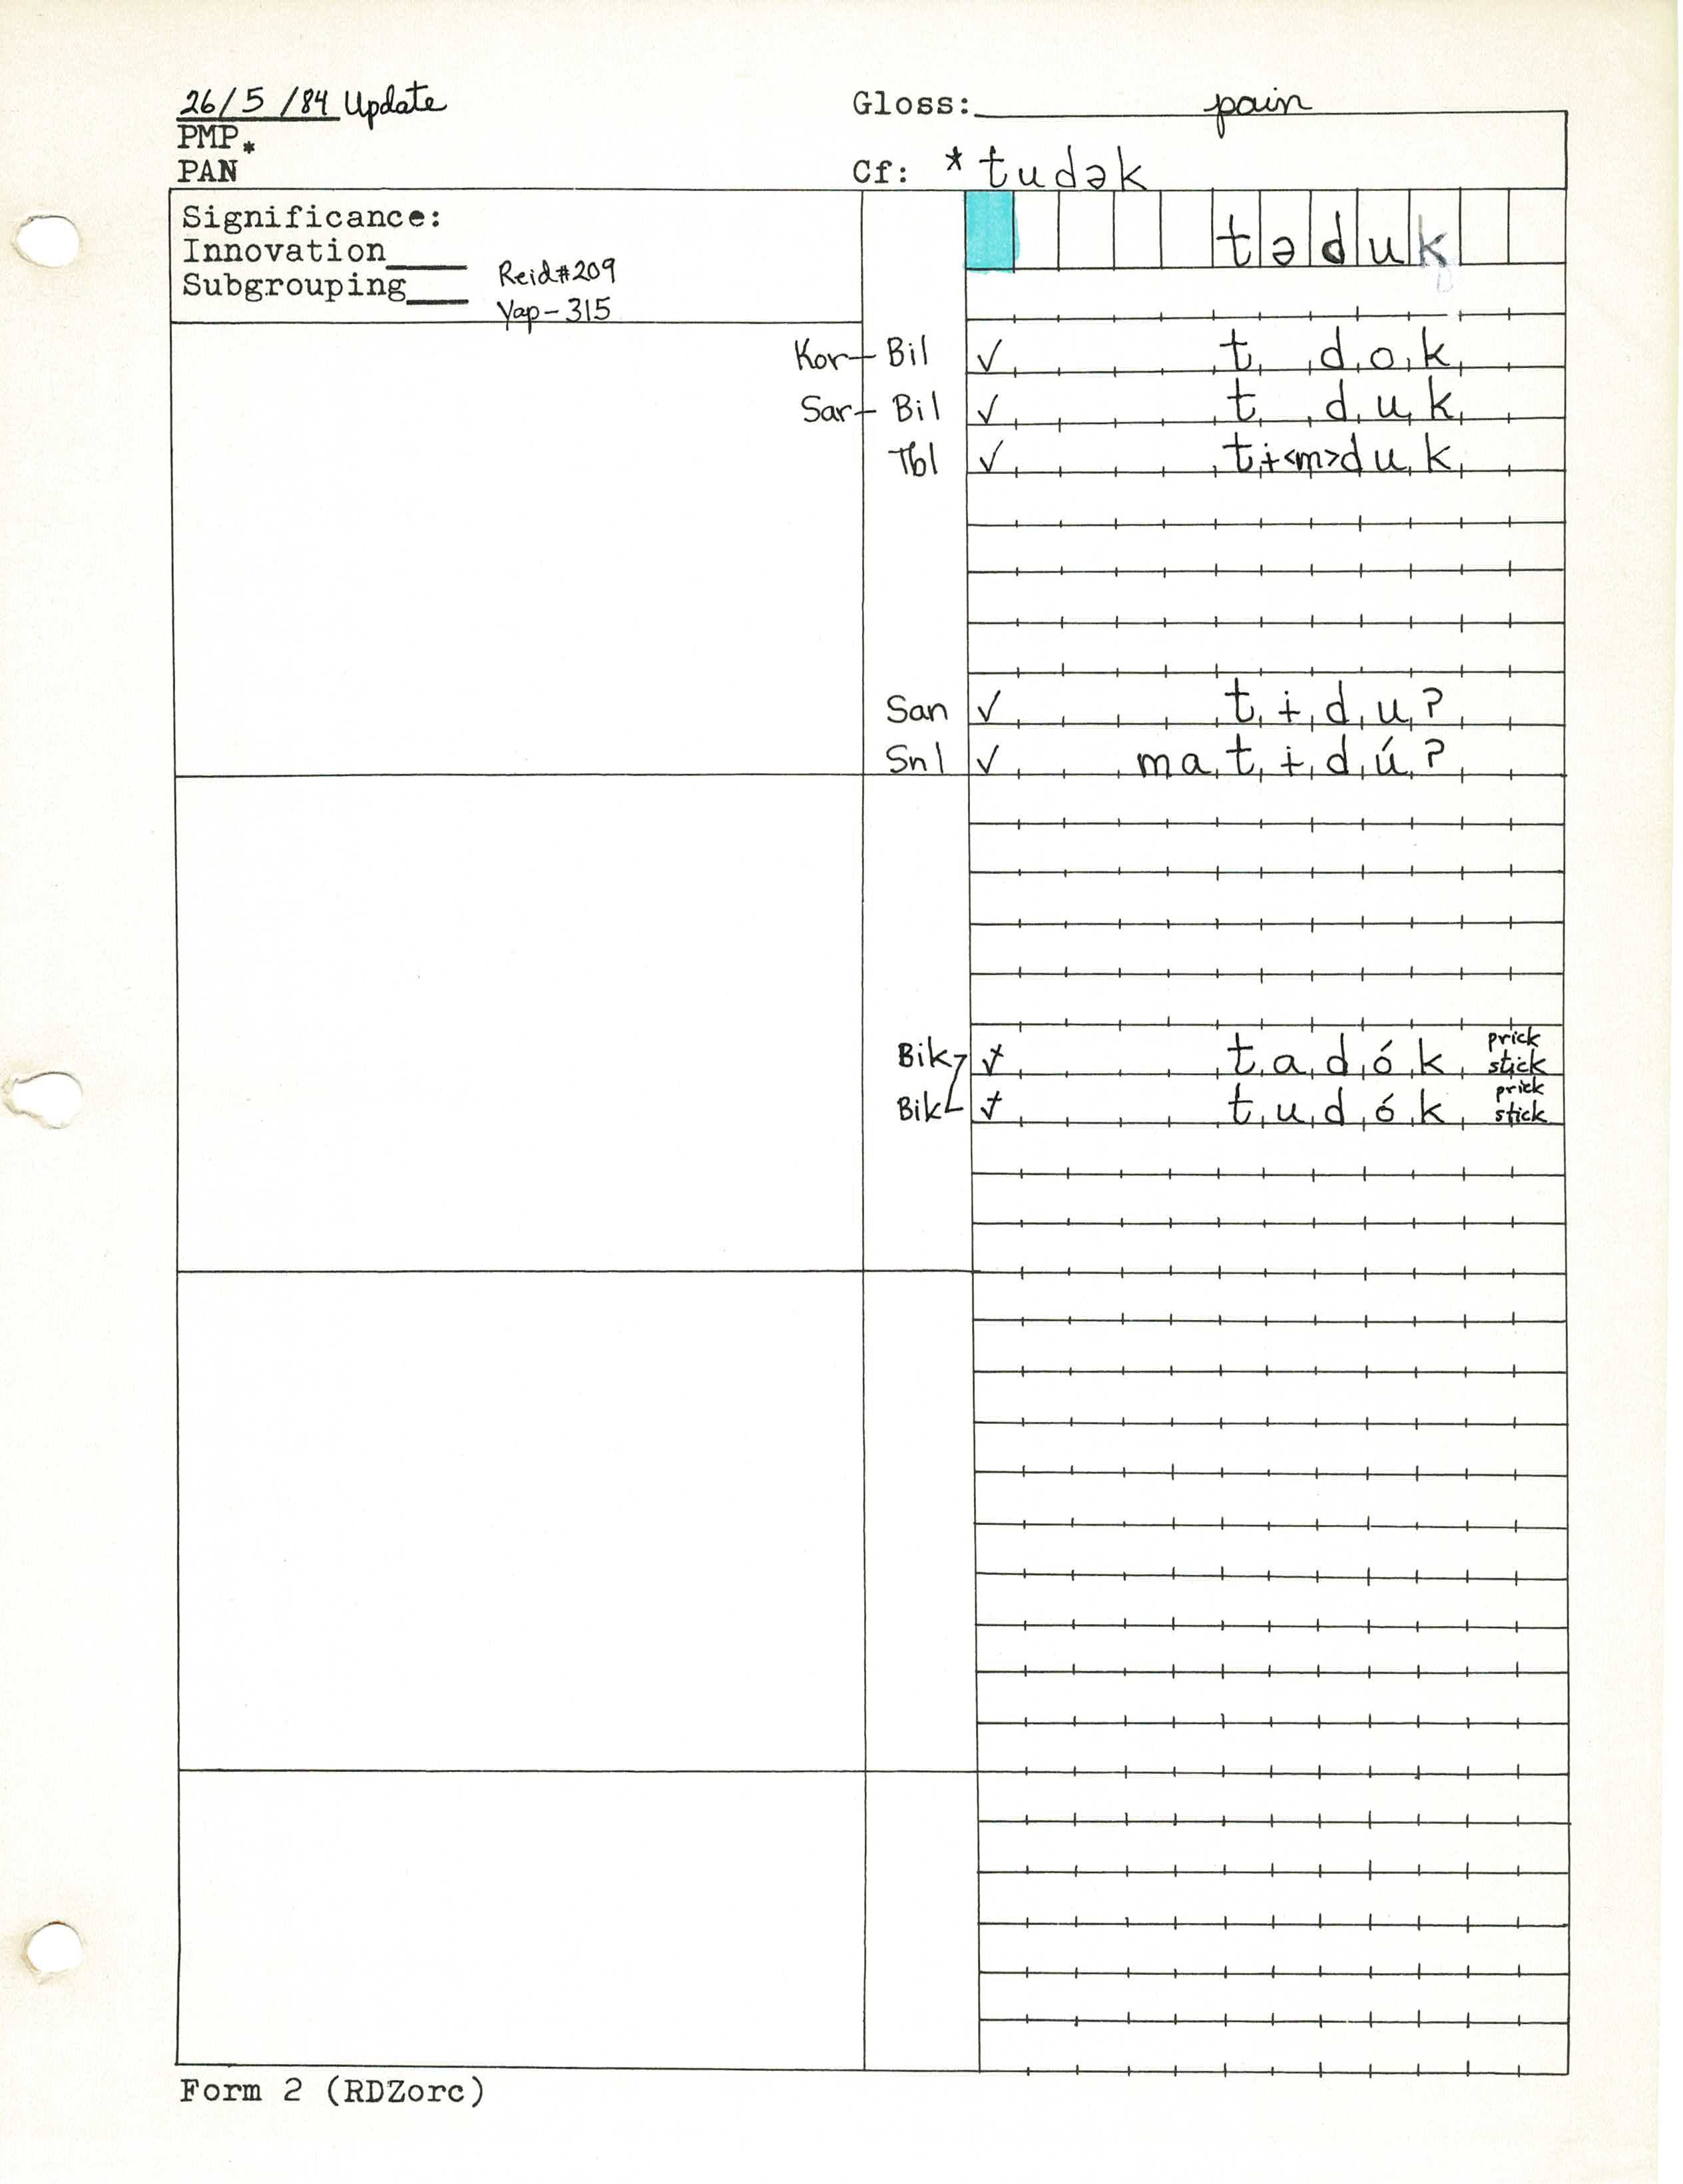 26/5/84 Update Gloss: pain
PMP*
PAN Cf: *tudək
Significance: təduk
Innovation____ Reid#209
Subgrouping____ Yap-315
Kor-Bil √ t dok
Sar-Bil √ t duk
Tbl √ tɨ<m>duk
San √ tɨduʔ
Snl √ matɨdúʔ
Bik √ tadók prick stick
Bik √ tudók prick stick
Form 2 (RDZorc)